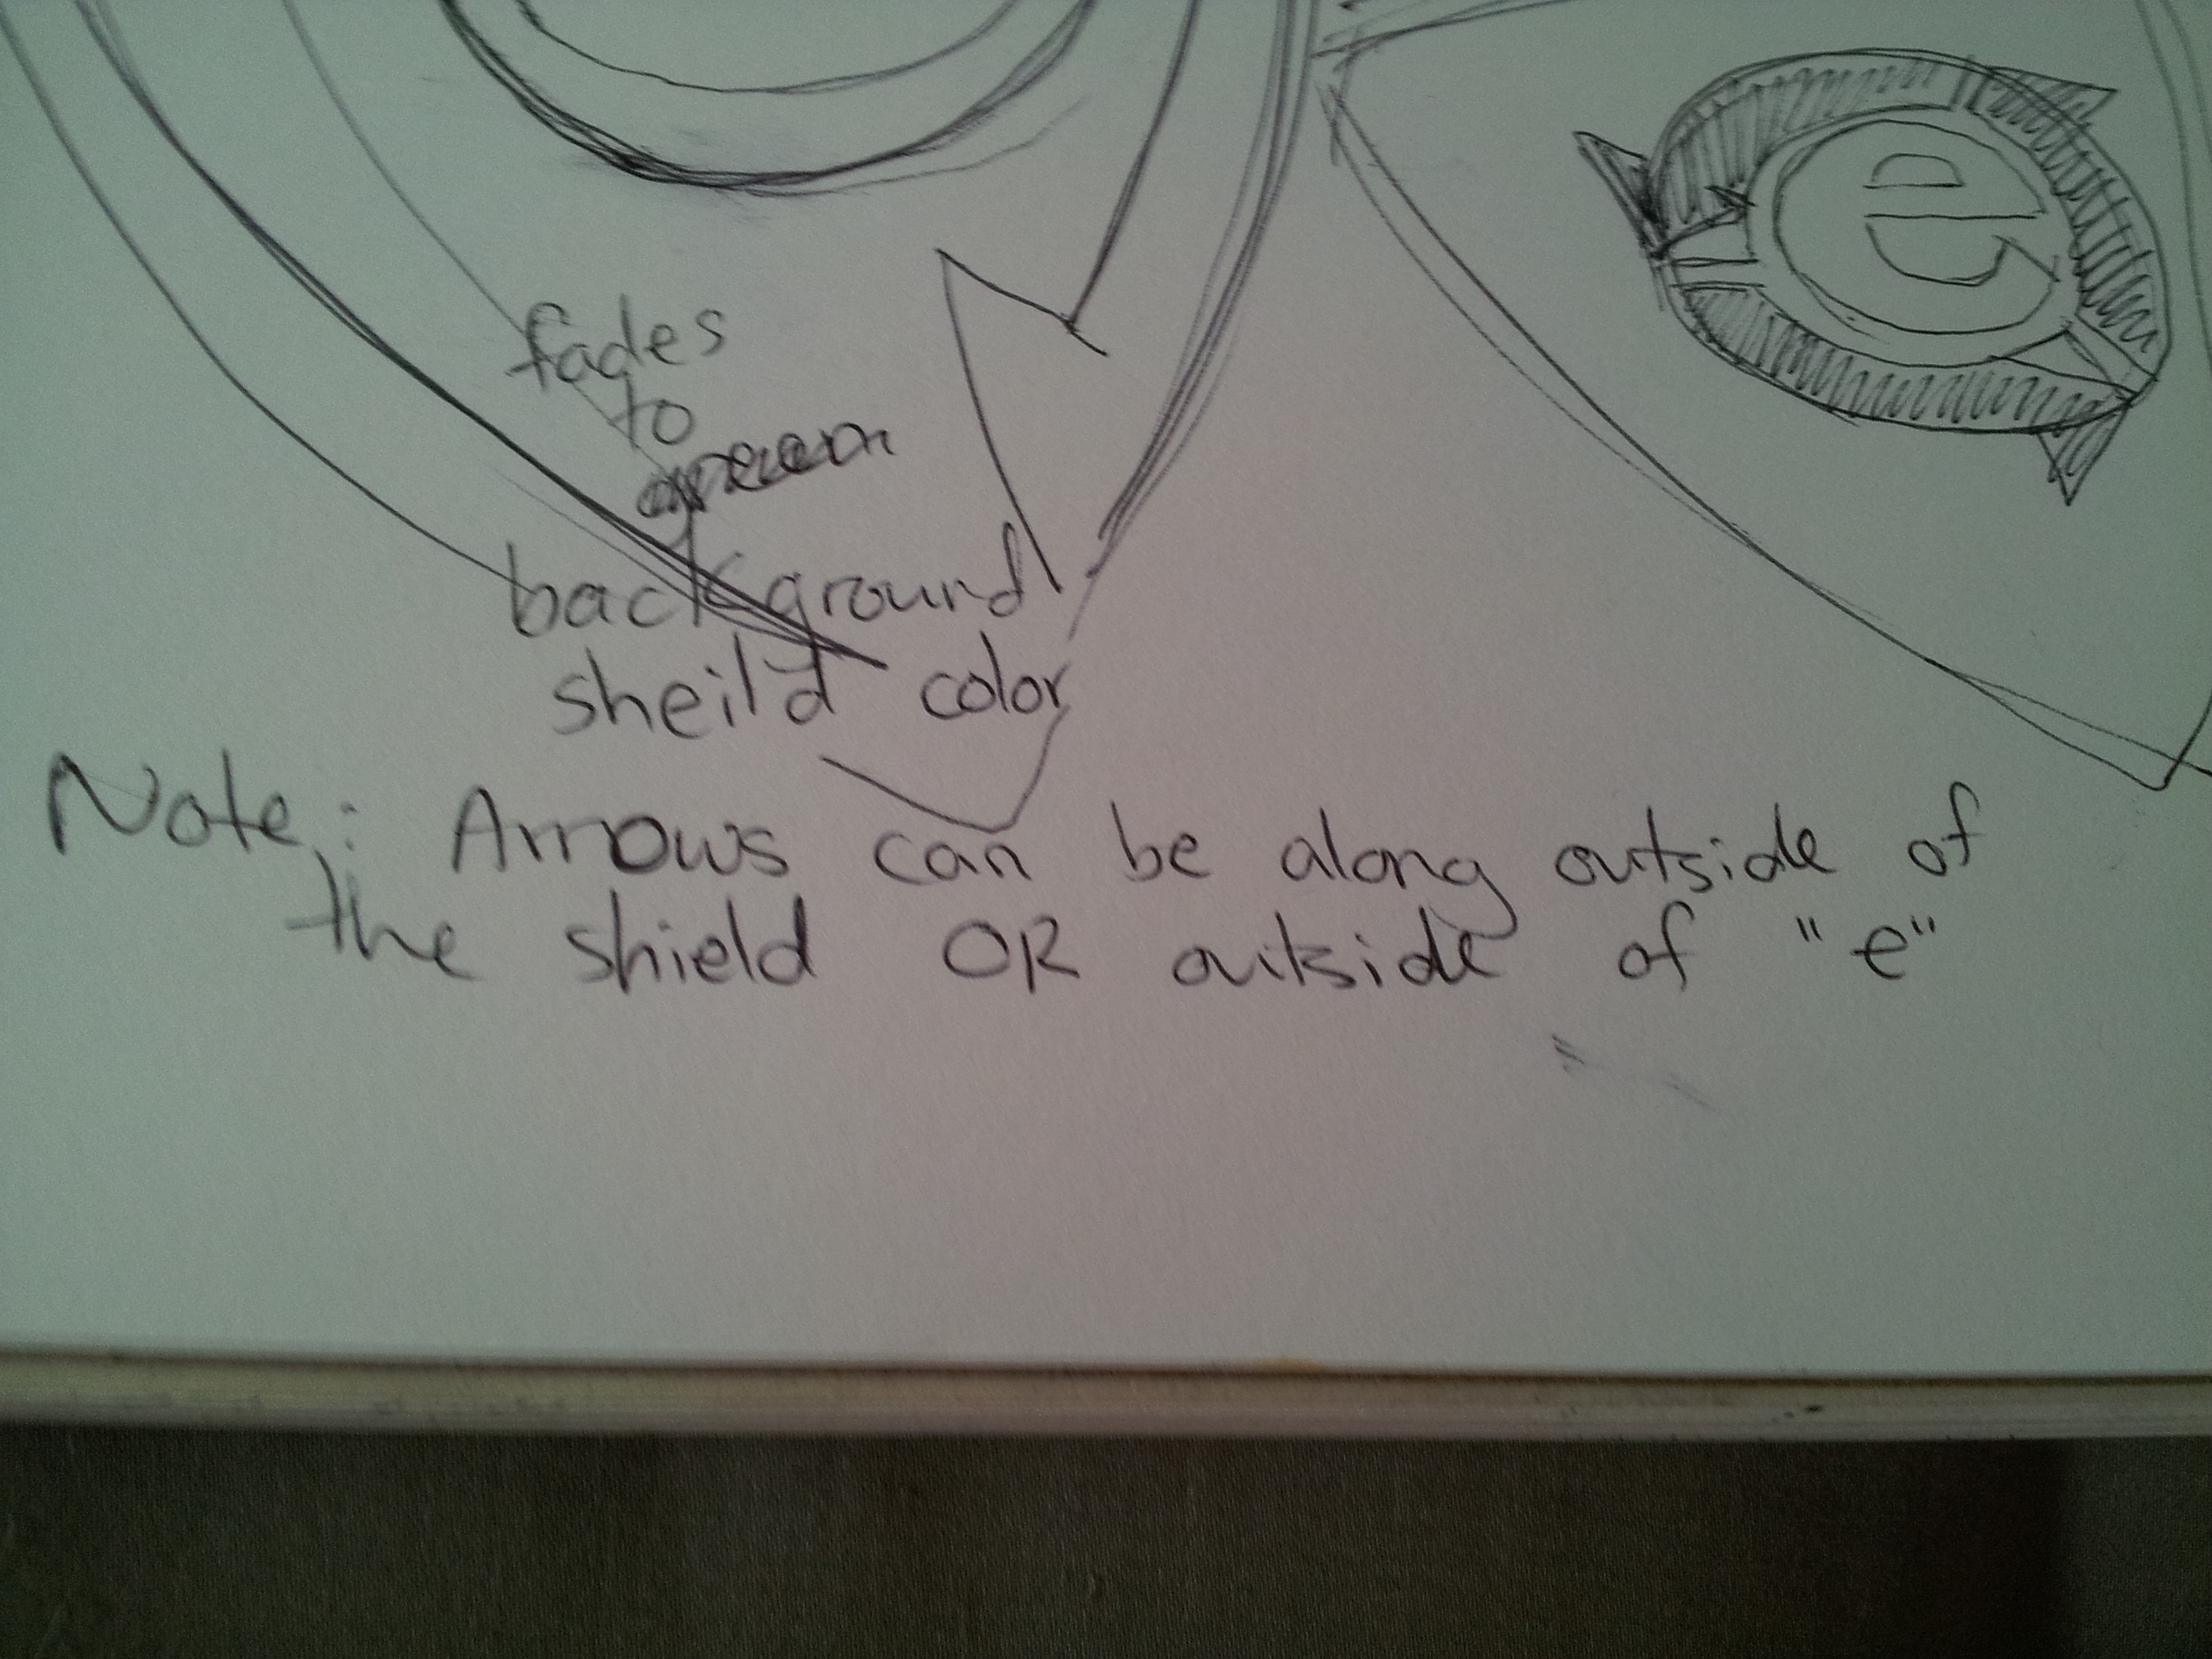 e
fades
to
green
background
sheild color
Note: Arrows can be along outside of
the shield OR outside of "e"